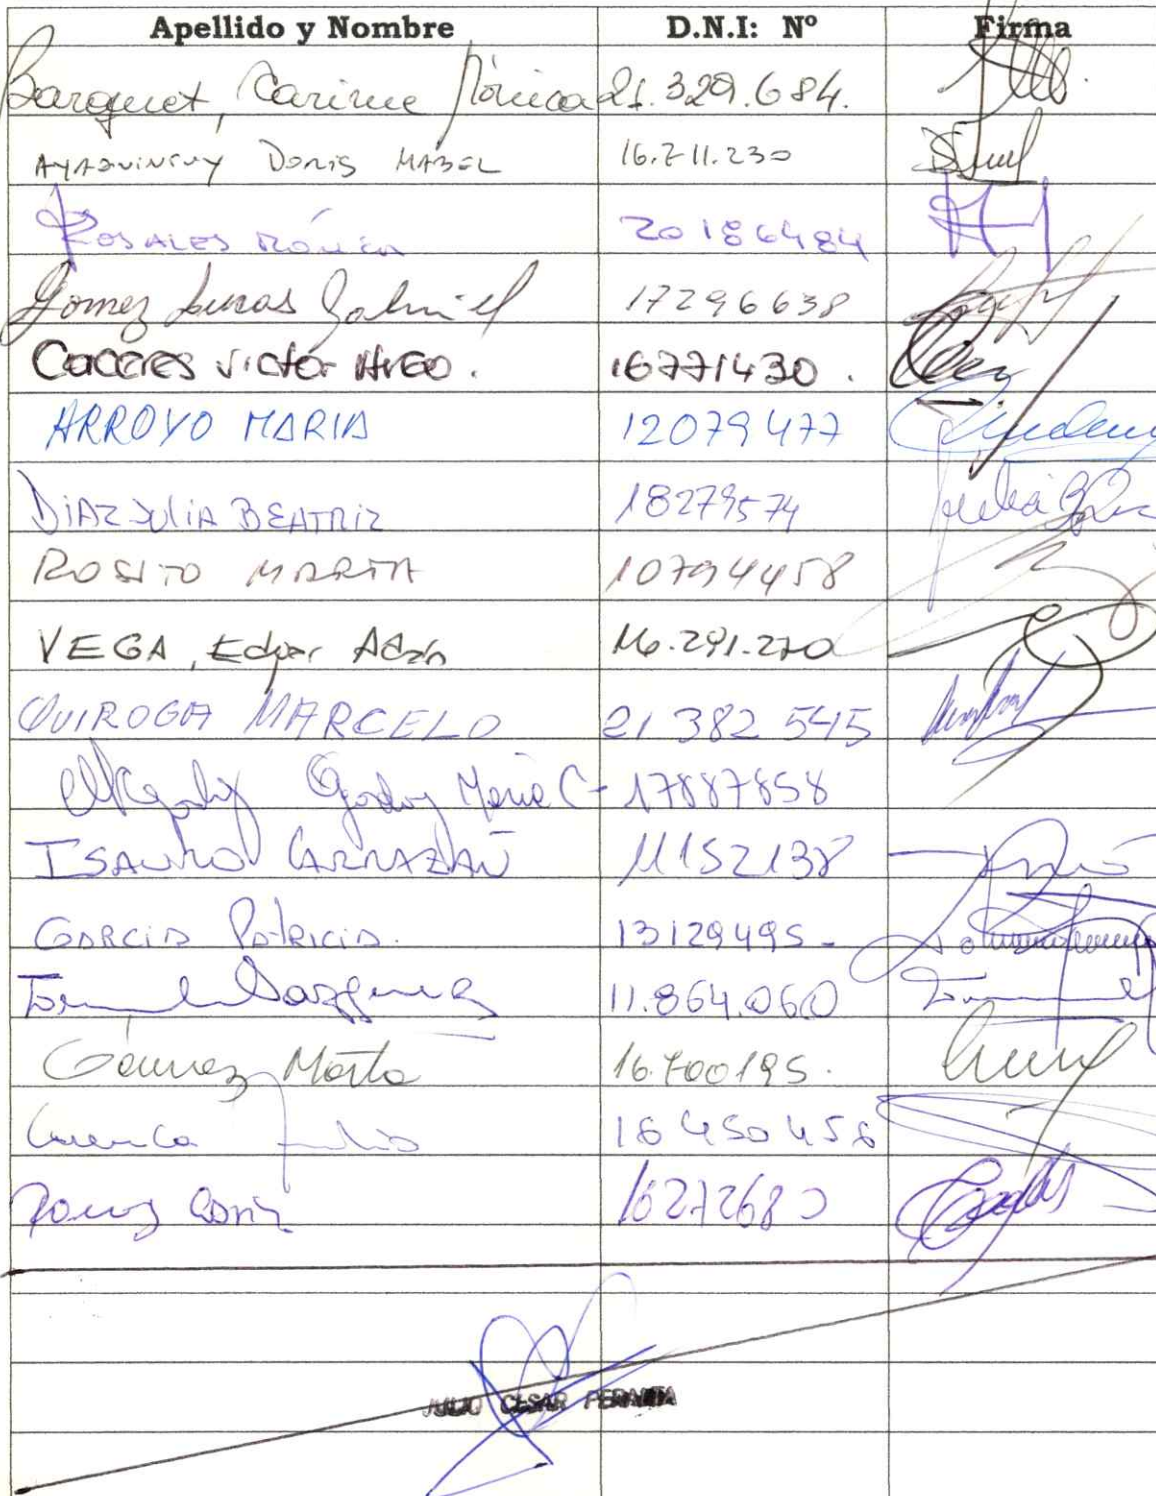 Apellido y Nombre D.N.I: Nº Firma
Barquet, Carime Mónica 21.329.684.
Doris MABEL 16.711.230
ROSALES MÓNICA 20186484
Gomez Lucas Gabriel 17296638
Caceres Victor HUGO. 16771430.
ARROYO MARIA 12079477
DIAZ JULIA BEATRIZ 18279574
ROSITO MARTA 10794458
VEGA, Edgar Adán 16.291.270
QUIROGA MARCELO 21 382 545
Godoy Maria C- 17887858
ISAURO CARRAZAN 11152138
GARCIA PATRICIA. 13129495-
Vazquez 11.864.060
Gómez Marta 16.700195.
Cuenca Julio 16 450 456
16272680
JULIO CESAR PERALTA